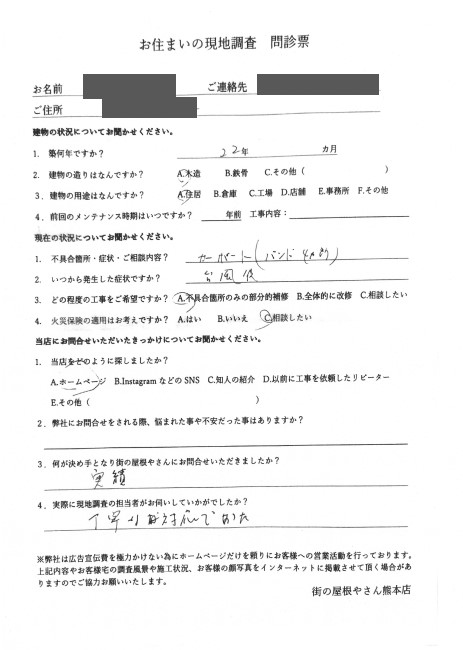 お住まいの現地調査 問診票
お名前 ご連絡先
ご住所
建物の状況についてお聞かせください。
1. 築何年ですか? 22年 カ月
2. 建物の造りはなんですか? A.木造 B.鉄骨 C.その他( )
3. 建物の用途はなんですか? A.住居 B.倉庫 C.工場 D.店舗 E.事務所 F.その他
4. 前回のメンテナンス時期はいつですか? 年前 工事内容:
現在の状況についてお聞かせください。
1. 不具合箇所・症状・ご相談内容? カーポート(バンド4か所)
2. いつから発生した症状ですか? 台風後
3. どの程度の工事をご希望ですか? A.不具合箇所のみの部分的補修 B.全体的に改修 C.相談したい
4. 火災保険の適用はお考えですか? A.はい B.いいえ C.相談したい
当店にお問合せいただいたきっかけについてお聞かせください。
1. 当店をどのように探しましたか?
A.ホームページ B.InstagramなどのSNS C.知人の紹介 D.以前に工事を依頼したリピーター
E.その他( )
2. 弊社にお問合せをされる際、悩まれた事や不安だった事はありますか?
3. 何が決め手となり街の屋根やさんにお問合せいただきましたか?
実績
4. 実際に現地調査の担当者がお伺いしていかがでしたか?
丁寧な対応でよかった
※弊社は広告宣伝費を極力かけない為にホームページだけを頼りにお客様への営業活動を行っております。
上記内容やお客様宅の調査風景や施工状況、お客様の顔写真をインターネットに掲載させて頂く場合があ
りますのでご協力お願いいたします。
街の屋根やさん熊本店